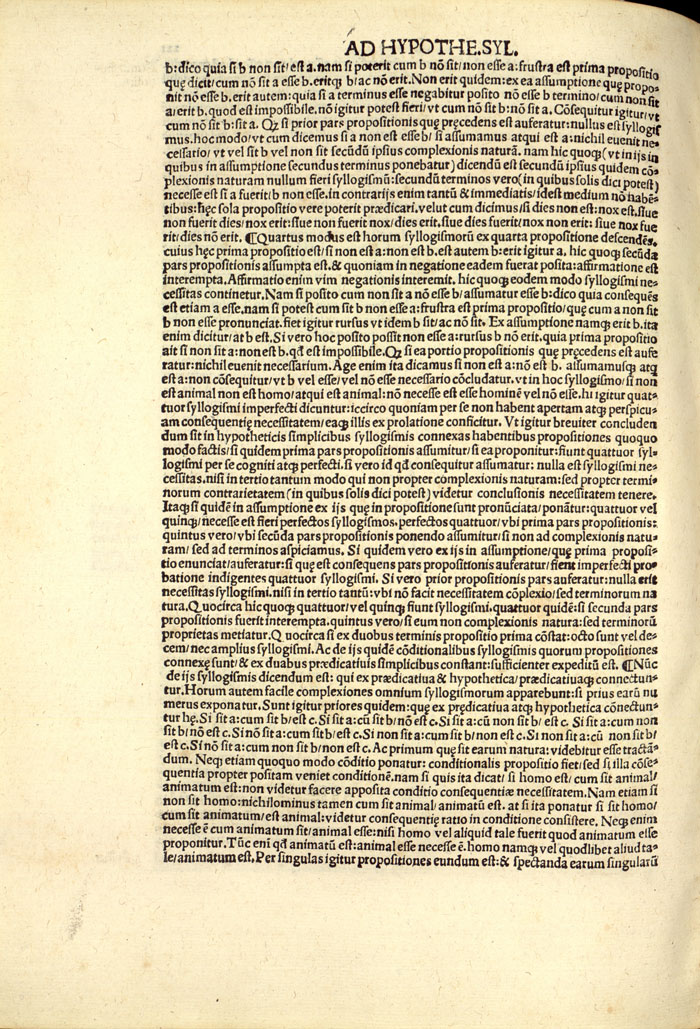 AD HYPOTHE.SYL.
b:dico quia si b non sit/est a.nam si poterit cum b nõ sit/non esse a:frustra est prima propositio
quę dicit/cum nõ sit a esse b.eritqꝫ b/ac nõ erit.Non erit quidem:ex ea assumptione quę propo-
nit nõ esse b.erit autem:quia si a terminus esse negabitur posito nõ esse b termino/cum non sit
a/erit b.quod est impossibile.nõ igitur potest fieri/vt cum nõ sit b:nõ sit a. Cõsequitur igitur/vt
cum nõ sit b:sit a. Qꝫ si prior pars propositionis quę pręcedens est auferatur:nullus est syllogis
mus.hoc modo/vt cum dicemus si a non est esse b/si assumamus atqui est a:nichil euenit ne-
cessario/vt vel sit b vel non sit secũdũ ipsius complexionis naturã. nam hic quoqꝫ(vt in ijs in
quibus in assumptione secundus terminus ponebatur)dicendũ est secundũ ipsius quidem cõ-
plexionis naturam nullum fieri syllogismũ:secundũ terminos vero(in quibus solis dici potest)
necesse est si a fuerit/b non esse.in contrarijs enim tantũ & immediatis/idest medium nõ habẽ-
tibus:hęc sola propositio vere poterit prædicari.velut cum dicimus/si dies non est:nox est.siue
non fuerit dies/nox erit:siue non fuerit nox/dies erit.siue dies fuerit/nox non erit: siue nox fue
rit/dies nõ erit. ¶Quartus modus est horum syllogismorũ ex quarta propositione descendẽs.
cuius hęc prima propositio est/si non est a:non est b.est autem b:erit igitur a. hic quoqꝫ secũda
pars propositionis assumpta est.& quoniam in negatione eadem fuerat posita:affirmatione est
interempta.Affirmatio enim vim negationis interemit. hic quoqꝫ eodem modo syllogismi ne-
cessitas continetur.Nam si posito cum non sit a nõ esse b/assumatur esse b:dico quia consequẽs
est etiam a esse.nam si potest cum sit b non esse a:frustra est prima propositio/quę cum a non sit
b non esse pronunciat.fiet igitur rursus vt idem b sit/ac nõ sit. Ex assumptione namqꝫ erit b.ita
enim dicitur/at b est.Si vero hoc posito possit non esse a:rursus b nõ erit.quia prima propositio
ait si non sit a:non est b.qđ est impossibile.Qꝫ si ea portio propositionis quę pręcedens est aufe
ratur:nichil euenit necessarium.Age enim ita dicamus si non est a:nõ est b. assumamusqꝫ atqꝫ
est a:non cõsequitur/vt b vel esse/vel nõ esse necessario cõcludatur.vt in hoc syllogismo/si non
est animal non est homo/atqui est animal:nõ necesse est esse hominẽ vel nõ esse.hi igitur quat-
tuor syllogismi imperfecti dicuntur:iccirco quoniam per se non habent apertam atqꝫ perspicu-
am consequentię necessitatem/eaqꝫ illis ex prolatione conficitur. Vt igitur breuiter concluden
dum sit in hypotheticis simplicibus syllogismi connexas habentibus propositiones quoquo
modo factis/si quidem prima pars propositionis assumitur/si ea proponitur:fiunt quattuor syl-
logismi per se cogniti atqꝫ perfecti.si vero id qđ consequitur assumatur: nulla est syllogismi ne-
cessitas.nisi in tertio tantum modo qui non propter complexionis naturam:sed propter termi-
norum contrarietatem(in quibus solis dici potest)videtur conclusionis necessitatem tenere.
Itaqꝫ si quidẽ in assumptione ex ijs quę in propositione sunt pronũciata/ponãtur:quattuor vel
quinqꝫ/necesse est fieri perfectos syllogismos.perfectos quattuor/vbi prima pars propositionis:
quintus vero/vbi secũda pars propositionis ponendo assumitur/si non ad complexionis natu-
ram/sed ad terminos aspiciamus. Si quidem vero ex ijs in assumptione/quę prima proposi-
tio enunciat/auferatur:si quę est consequens pars propositionis auferatur/fient imperfecti pro-
batione indigentes quattuor syllogismi. Si vero prior propositionis pars auferatur:nulla erit
necessitas syllogismi.nisi in tertio tantũ:vbi nõ facit necessitatem cõplexio/sed terminorum na
tura.Quocirca hic quoqꝫ quattuor/vel quinqꝫ fiunt syllogismi.quattuor quidẽ:si secunda pars
propositionis fuerit interempta.quintus vero/si eum non complexionis natura:sed terminorũ
proprietas metiatur.Quocirca si ex duobus terminis propositio prima cõstat:octo sunt vel de-
cem/nec amplius syllogismi.Ac de ijs quidẽ cõditionalibus syllogismis quorum propositiones
connexę sunt/& ex duabus prædicatiuis simplicibus constant:sufficienter expeditũ est. ¶Nũc
de ijs syllogismis dicendum est: qui ex prædicatiua & hypothetica/prædicatiuaqꝫ connectun-
tur.Horum autem facile complexiones omnium syllogismorum apparebunt:si prius earũ nu
merus exponatur.Sunt igitur priores quidem:quę ex prędicatiua atqꝫ hypothetica cõnectun-
tur hę.Si sit a:cum sit b/est c.Si sit a:cũ sit b/nõ est c.Si sit a:cũ non sit b/ est c. Si sit a:cum non
sit b/nõ est c.Si nõ sit a:cum sit b/est c.Si non sit a:cum sit b/non est c.Si non sit a:cũ non sit b/
est c.Si nõ sit a:cum non sit b/non est c.Ac primum quę sit earuni natura:videbitur esse tractã-
dum. Neqꝫ etiam quoquo modo cõditio ponatur: conditionalis propositio fiet/sed si illa cõse-
quentia propter positam veniet conditionẽ.nam si quis ita dicat/ si homo est/ cum sit animal/
animatum est:non videtur facere apposita conditio consequentiæ necessitatem.Nam etiam si
non sit homo:nichilominus tamen cum sit animal/animatũ est. at si ita ponatur si sit homo/
cum sit animatum/est animal:videtur consequentię ratio in conditione consistere. Neqꝫ enim
necesse ẽ cum animatum sit/animal esse:nisi homo vel aliquid tale fuerit quod animatum esse
proponitur.Tũc eni qđ animatũ est:animal esse necesse ẽ.homo namqꝫ vel quodlibet aliud ta-
le/animatum est.Per singulas igitur propositiones eundum est:& spectanda earum singularũ